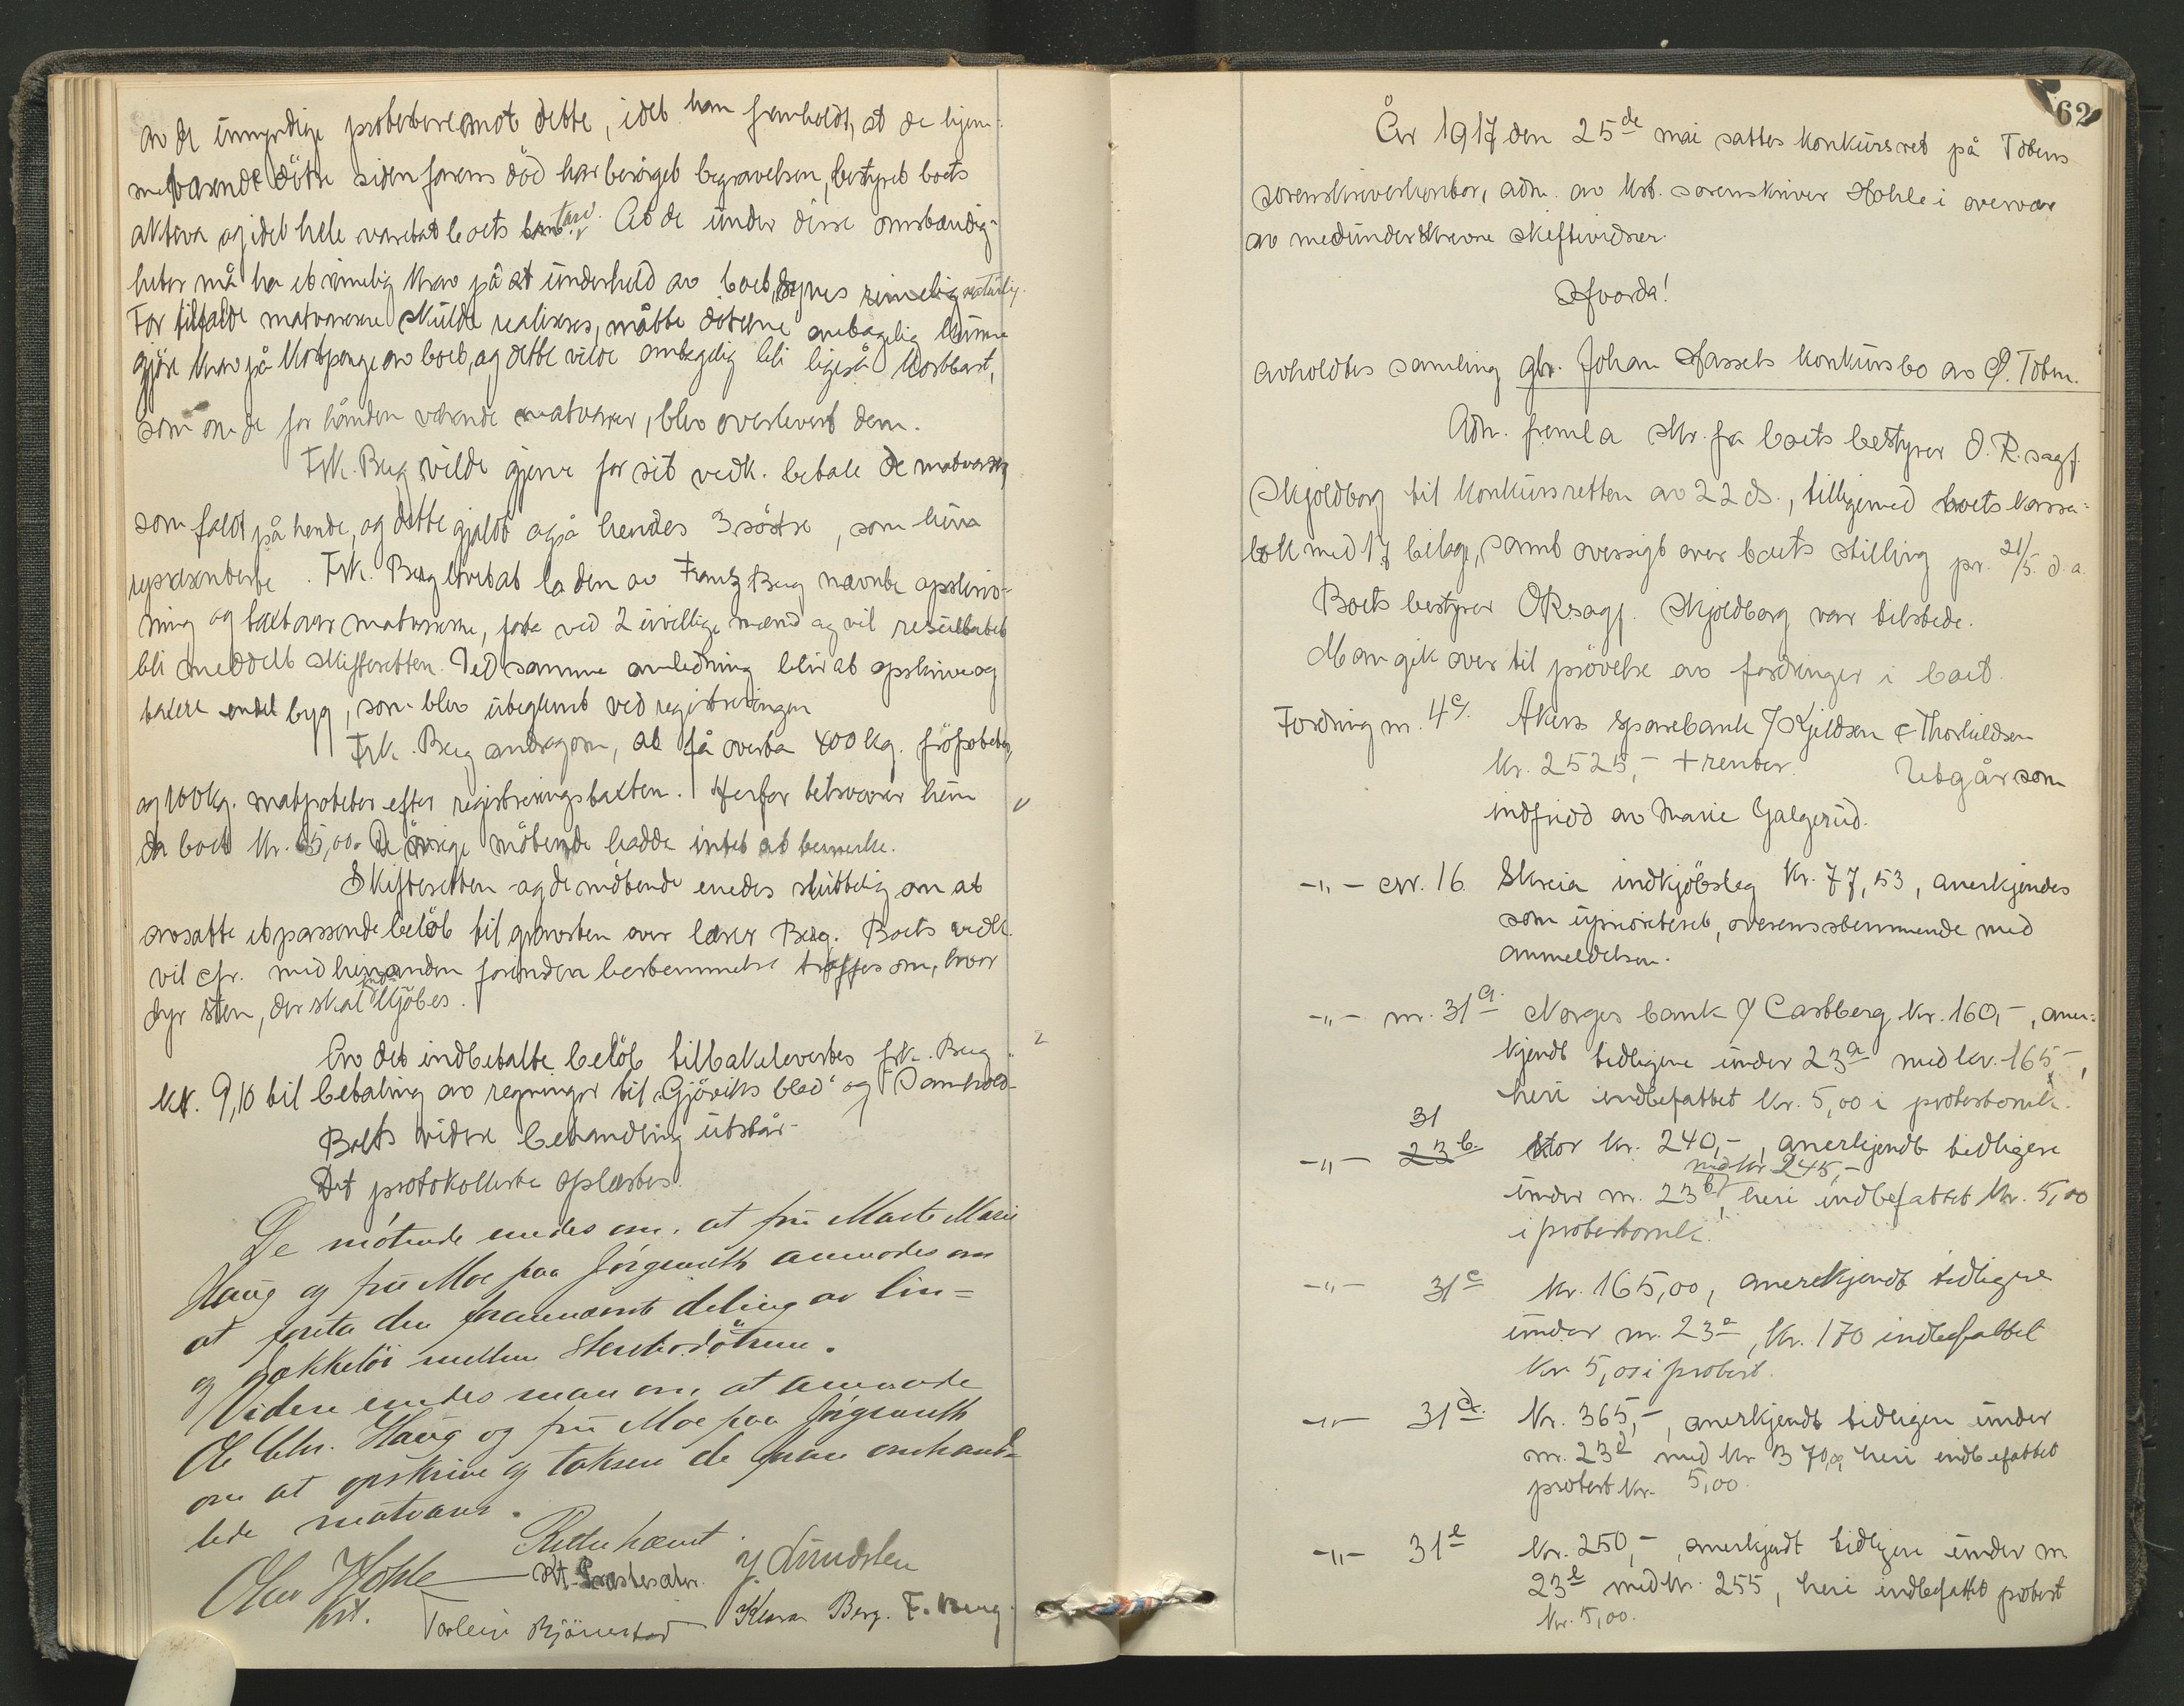 av de umyndige protesterer mot dette, idet han fremholdt, at de hjem-
meværende døtre siden farens död har besörget begravelsen, bestyret boets
aktiva og i det hele varetat boets tarv. At de under disse omstændig-
heter må ha et rimelig krav på at underhold av boet, synes rimelig naturlig.
For tilfælde matvarerne skulde realiseres, måtte døtrene antagelig kunne
gjøre krav på kostpenge av boet, og dette vilde antagelig bli ligeså kostbart,
som om de for hånden værende matvarer, blev overlevert dem.
Frk. Berg vilde gjerne for sit vedk. betale de matvarer,
som faldt på hende, og dette gjaldt også hendes 3 søstre, som hun
representerte. Frk. Berg lovet at la den av Frantz Berg nævnte opskriv-
ning og takst over matvarerne, foreta ved 2 uvillige mænd og vil resultatet
bli meddelt skifteretten. Ved samme anledning blir at opskrive og
taksere endel byg, som blev uteglemt ved registreringen
Frk. Berg androg om, at få overta 400 kg. fröpoteter,
og 100 kg. matpoteter efter registreringstaksten. Herfor tilsvarer hun
da boet kr. 65,00. De övrige mötende hadde intet at bemerke.
Skifteretten og de mötende enedes sluttelig om at
avsatte et passende belöb til gravsten over lærer Berg. Boets vedk.
vil cfr. med hinanden forinden bestemmelse træffes om, hvor
dyr sten, der skal indkjöbes.
Av det indbetalte belöb tilbakelevertes frk. Berg
kr. 9,10 til betaling av regninger til „Gjöviks blad" og „Samhold"
Boets videre behandling utstår.
Det protokollerte oplæstes.
De mötende enedes om, at fru Marte Marie
Haug og fru Moe paa Jörgentvedt anmodes om
at foreta den forannævnte deling av lin=
og dækketöi mellem Stenbodötrene.
Videre enedes man om at anmode
Ole Chr. Haug og fru Moe paa
om at opskrive og taksere de foran omhand=
lede matvarer.
Retten hævet
Olav Hohle
kst.
J. Lundsten
Torleiv Bjørnstad
Klara Berg. F. Berg.
62
År 1917 den 25de mai sattes konkursret på Totens
sorenskriverkontor, adm. av kst. sorenskriver Hohle i overvær
av medunderskrevne skiftevidner.
Hvorda!
avholdtes samling ang. Johan Hassels konkursbo av Ö. Toten.
Adm. fremla skr. fra boets bestyrer O.R.sagf.
Skjoldborg til konkursretten av 22 ds., tilligemed boets kassa=
bok med 17 bilag, samt oversigt over boets stilling pr. 21/5. d.a.
Boets bestyrer ORsagf. Skjoldborg var tilstede.
Man gik over til prövelse av fordringer i boet.
Fordring nr. 4c. Akers sparebank / Kjeldsen & Thorkildsen
kr. 2525,- + renter. Utgår som
indfridd av Marie Galgerud.
-„- nr. 16 Skreia indkjöbslag kr. 77,53, anerkjendes
som uprioritert, overensstemmende med
anmeldelsen.
-„- nr. 31a. Norges bank / Castberg kr. 160,-, aner=
kjendt tidligere under 23a med kr. 165,-,
heri indbefattet kr. 5,00 i protestomk.
31
-„- 23b. stor kr. 240,-, anerkjendt tidligere
med kr 245,-
under nr. 23b, heri indbefattet kr. 5,00
i protestomk.
-„- 31c kr. 165,00, anerkjendt tidligere
under nr. 23c, kr. 170 indbefattet
kr. 5,00 i protest.
-„- 31d. kr. 365,-, anerkjendt tidligere under
nr. 23d med kr 370,00, heri indbefattet
protest kr. 5,00.
-„- 31e kr. 250,-, anerkjendt tidligere under nr
23e med kr. 255, heri indbefattet protest
kr. 5,00.